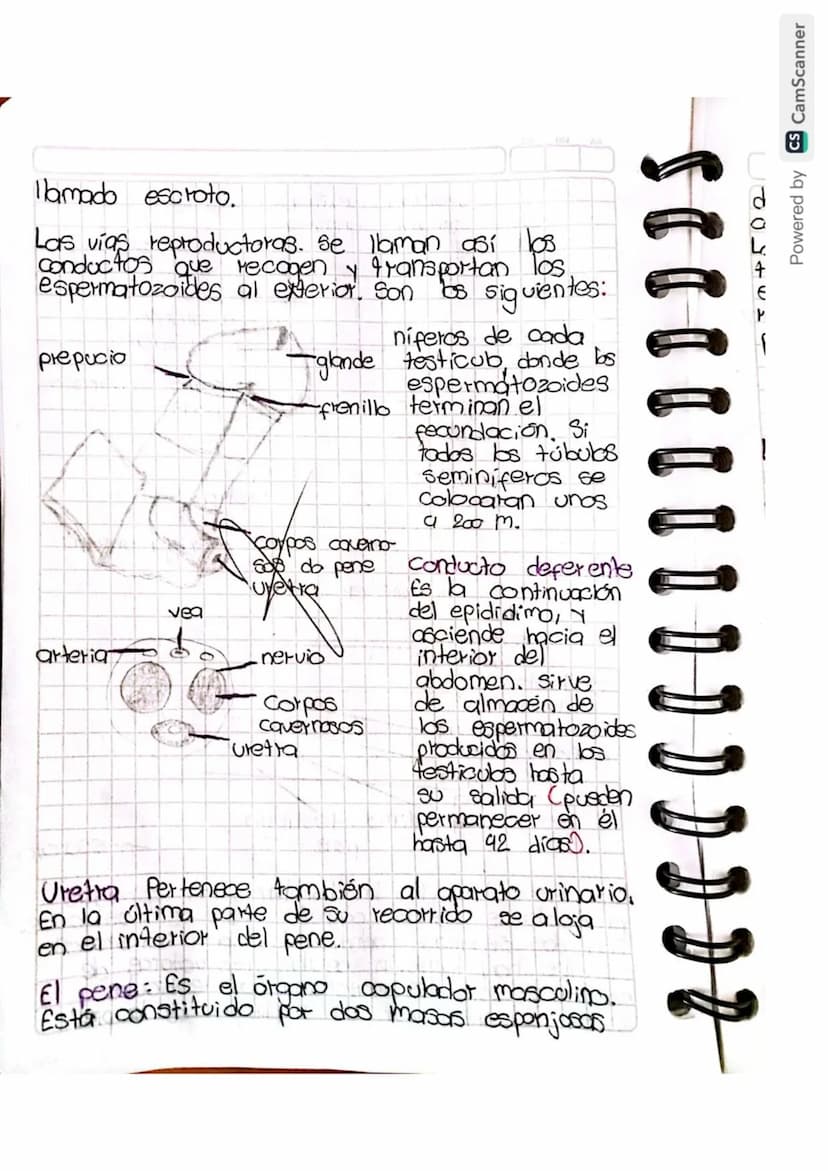 llamado escroto.
Las vías reproductoras. Se llaman así los
conductos que recogen y transportan los
espermatozoides al exterior. Son los siguientes:
prepucio
glande
frenillo
corpos caverno-
sos do pene
uretra
vea
arteria
nervio
Corpos
cavernosos
uretra
níferos de cada
testículo, donde los
espermátozoides
terminan el
fecundación. Si
todos los túbulos
seminíferos se
colocaran unos
a 200 m.
Conducto deferente
Es la continuación
del epidídimo, y
asciende hacia el
interior del
abdomen. Sirve
de almacén de
los espermatozoides
producidos en los
testículos hasta
su salida (pueden
permanecer en él
hasta 42 días).
Uretra Pertenece también al aparato urinario.
En la última parte de su recorrido se aloja
en el interior del pene.
El pene: Es el órgano copulador masculino.
Está constituido por dos masas esponjosas
Powered by CS CamScanner